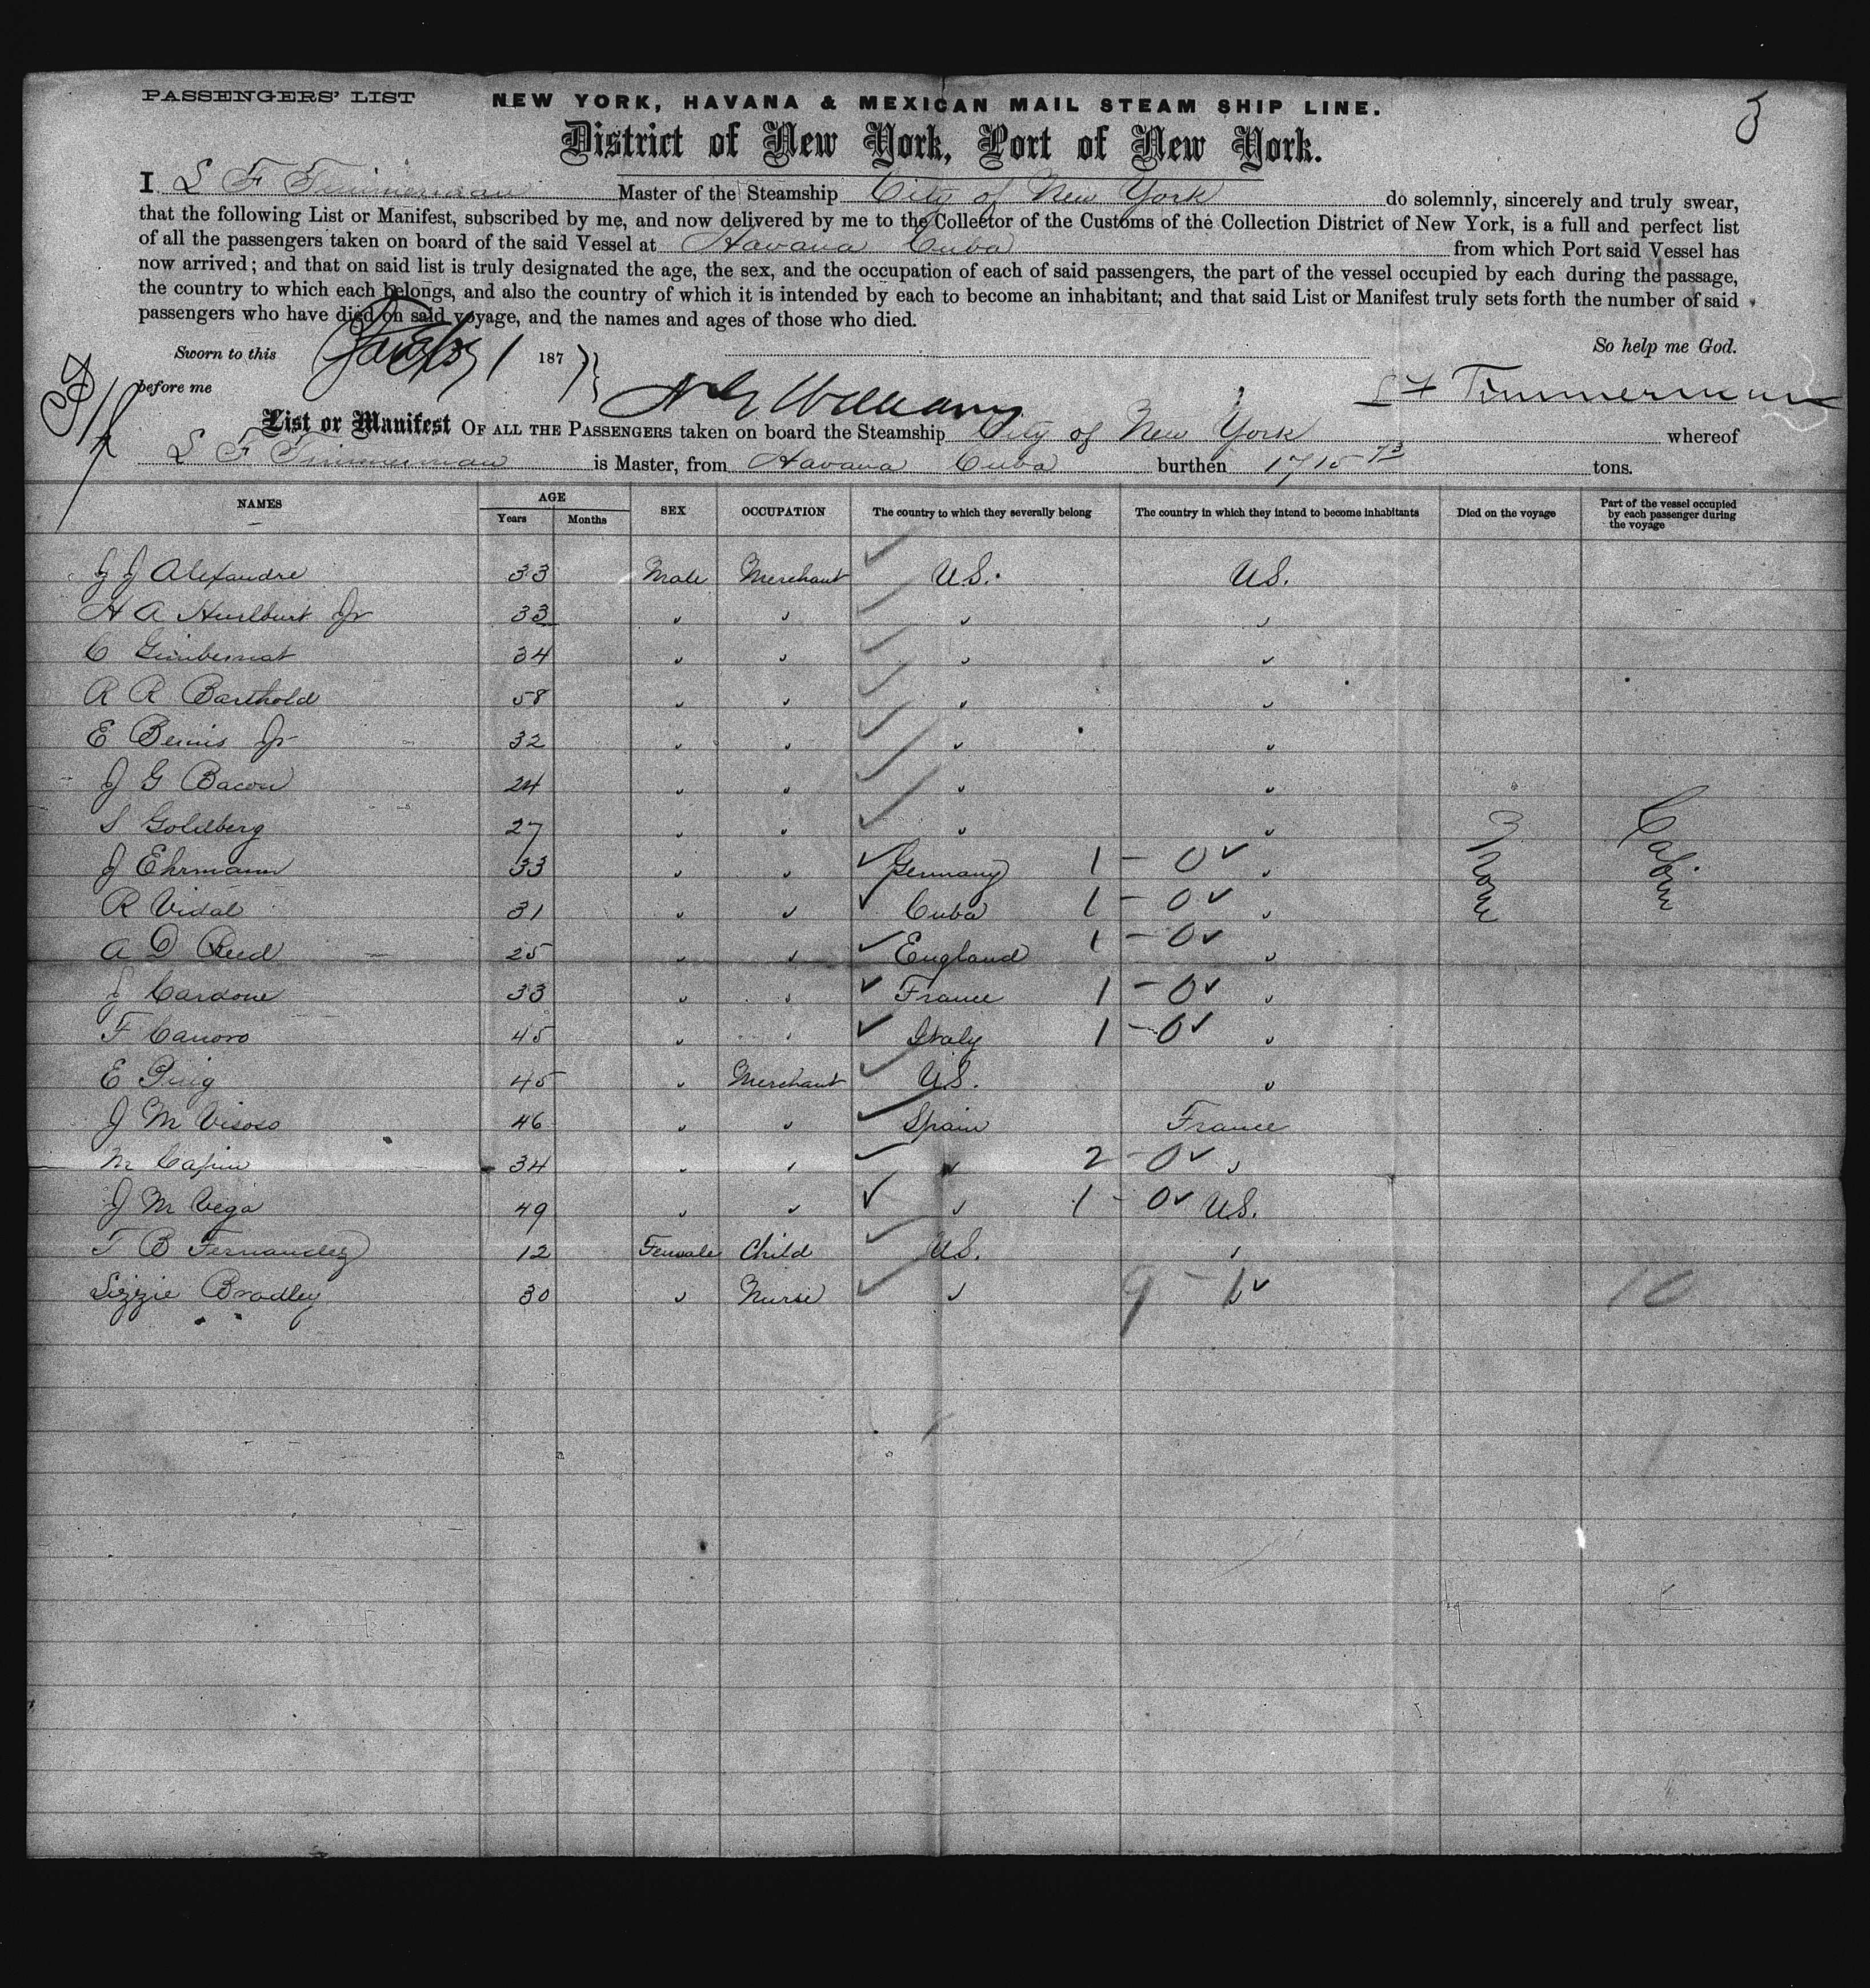 PASSENGERS' LIST
NEW YORK, HAVANA & MEXICAN MAIL STEAM SHIP LINE.
3
District of New York, Port of New York.
I L F Timmerman Master of the Steamship City of New York do solemnly, sincerely and truly swear,
that the following List or Manifest, subscribed by me, and now delivered by me to the Collector of the Customs of the Collection District of New York, is a full and perfect list
of all the passengers taken on board of the said Vessel at Havana Cuba from which Port said Vessel has
now arrived; and that on said list is truly designated the age, the sex, and the occupation of each of said passengers, the part of the vessel occupied by each during the passage,
the country to which each belongs, and also the country of which it is intended by each to become an inhabitant; and that said List or Manifest truly sets forth the number of said
passengers who have died on said voyage, and the names and ages of those who died.
Sworn to this 187 So help me God.
before me Williams L F Timmerman
List or Manifest OF ALL THE PASSENGERS taken on board the Steamship City of New York whereof
L F Timmerman is Master, from Havana Cuba burthen 1715 73 tons.
NAMES AGE Years Months SEX OCCUPATION The country to which they severally belong The country in which they intend to become inhabitants Died on the voyage Part of the vessel occupied by each passenger during the voyage
J J Alexandre 33 Male Merchant U.S. U.S.
H A Hurlburt Jr 33 " " " "
C Gimbernat 34 " " " "
R R Barthold 58 " " " "
E Bemis Jr 32 " " " "
J G Bacon 24 " " " "
S Goldberg 27 " " " " None Cabin
J Ehrmann 33 " " Germany 1 - 0 "
R Vidal 31 " " Cuba 1 - 0 "
A D Reed 25 " " England 1 - 0 "
J Cardone 33 " " France 1 - 0 "
F Canoro 45 " " Italy 1 - 0 "
E Puig 45 " Merchant U.S. "
J M Visoso 46 " " Spain France
M Capin 34 " " " 2 - 0 "
J M Vega 49 " " " 1 - 0 U.S.
T B Fernandez 12 Female Child U.S. "
Lizzie Bradley 30 " Nurse " 9 - 1 "